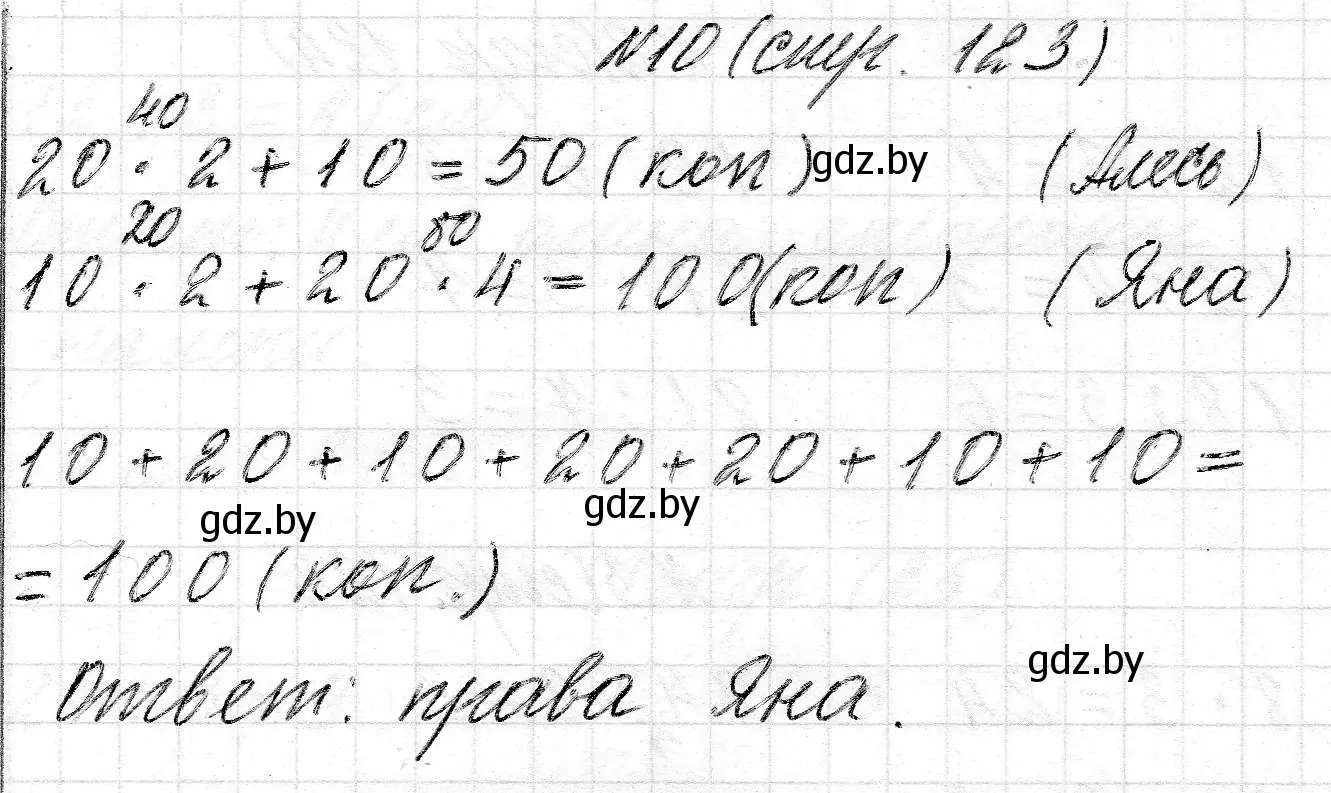 №10 (стр. 123)
40
20 · 2 + 10 = 50 (коп) gdz.by (Алесь)
20 80
10 · 2 + 20 · 4 = 100 (коп) (Яна)
10 + 20 + 10 + 20 + 20 + 10 + 10 =
gdz.by gdz.by
= 100 (коп.)
gdz.by
Ответ: права Яна.